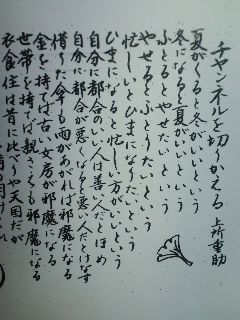 チャンネルを切りかえる 上所重助
夏がくると冬がいいという
冬になると夏がいいという
ふとるとやせたいという
やせるとふとりたいという
忙しいとひまになりたいという
ひまになると忙しい方がいいという
自分に都合のいい人は善い人だとほめ
自分に都合が悪くなると悪い人だとけなす
借りた傘も雨があがれば邪魔になる
金を持てば古い女房が邪魔になる
世帯を持てば親さえも邪魔になる
衣食住は昔に比べりゃ天国だが